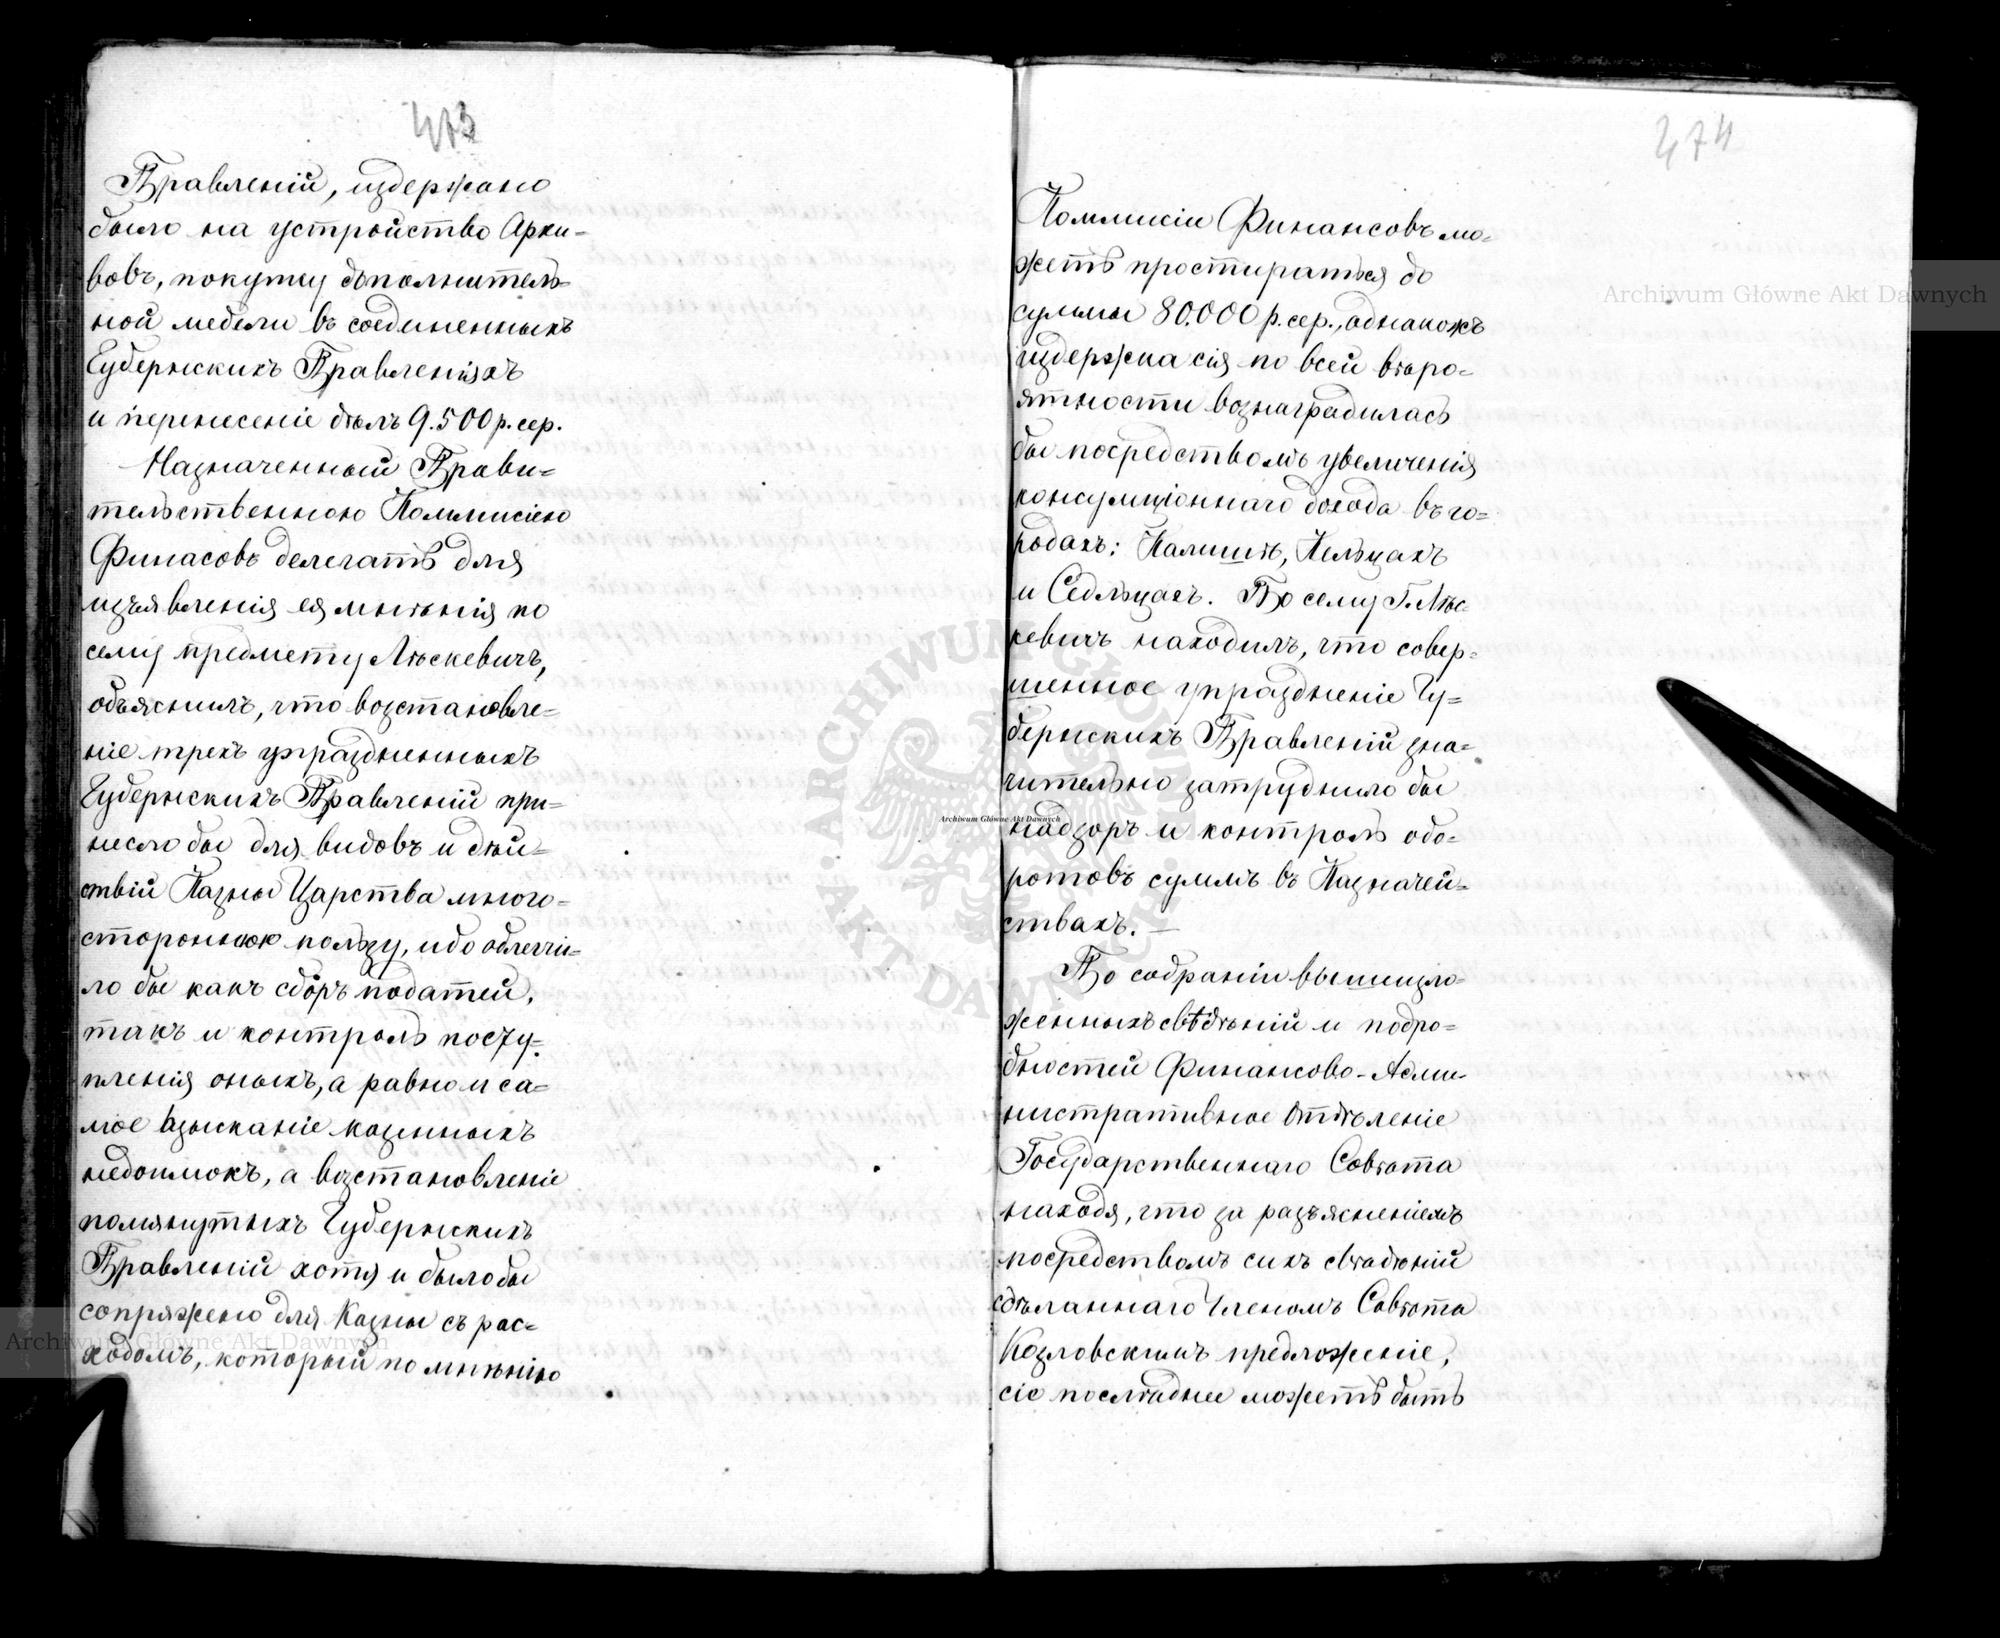 473
Правленій, издержано
было на устройство Архи=
вовъ, покупку дополнитель=
ной мебели въ соединенныхъ
Губернскихъ Правленіяхъ
и перенесеніе дѣлъ 9.500 р. сер.
Назначенный Прави=
тельственною Коммисіею
Финасовъ делегатъ для
изъявленія ея мнѣнія по
сему предмету Лѣскевичъ,
объяснилъ, что возстановле=
ніе трехъ упраздненныхъ
Губернскихъ Правленій при=
несло бы для видовъ и дѣй=
ствій Казны Царства много=
стороннюю пользу, ибо облегчи=
ло бы какъ сборъ податей,
такъ и контроль посту=
пленія оныхъ, а равно и са=
мое взысканіе казенныхъ
недоимокъ, а возстановленіе
помянутыхъ Губернскихъ
Правленій хотя и было бы
сопряжено для Казны съ рас=
ходомъ, который по мнѣнію
474
Коммисіи Финансовъ мо=
жетъ простираться до
суммы 80.000 р. сер., однакожъ
издержка сія по всей вѣро=
ятности вознаградилась
бы посредствомъ увеличенія
консумціоннаго дохода въ го=
родахъ: Калишѣ, Кельцахъ
и Седльцахъ. По сему Г. Лѣс=
кевичъ находилъ, что совер=
шенное упраздненіе Гу=
бернскихъ Правленій зна=
чительно затруднило бы
надзоръ и контроль обо=
ротовъ суммъ въ Казначей=
ствахъ. —
По собраніи вышеизло=
женныхъ свѣдѣній и подро=
бностей Финансово-Адми=
нистративное Отдѣленіе
Государственнаго Совѣта
находя, что за разъясненіемъ
посредствомъ сихъ свѣдѣній
сдѣланнаго Членомъ Совѣта
Козловскимъ предложеніе,
сіе послѣднее можетъ быть
Archiwum Główne Akt Dawnych
Archiwum Główne Akt Dawnych
Archiwum Główne Akt Dawnych
ARCHIWUM GŁÓWNE AKT DAWNYCH